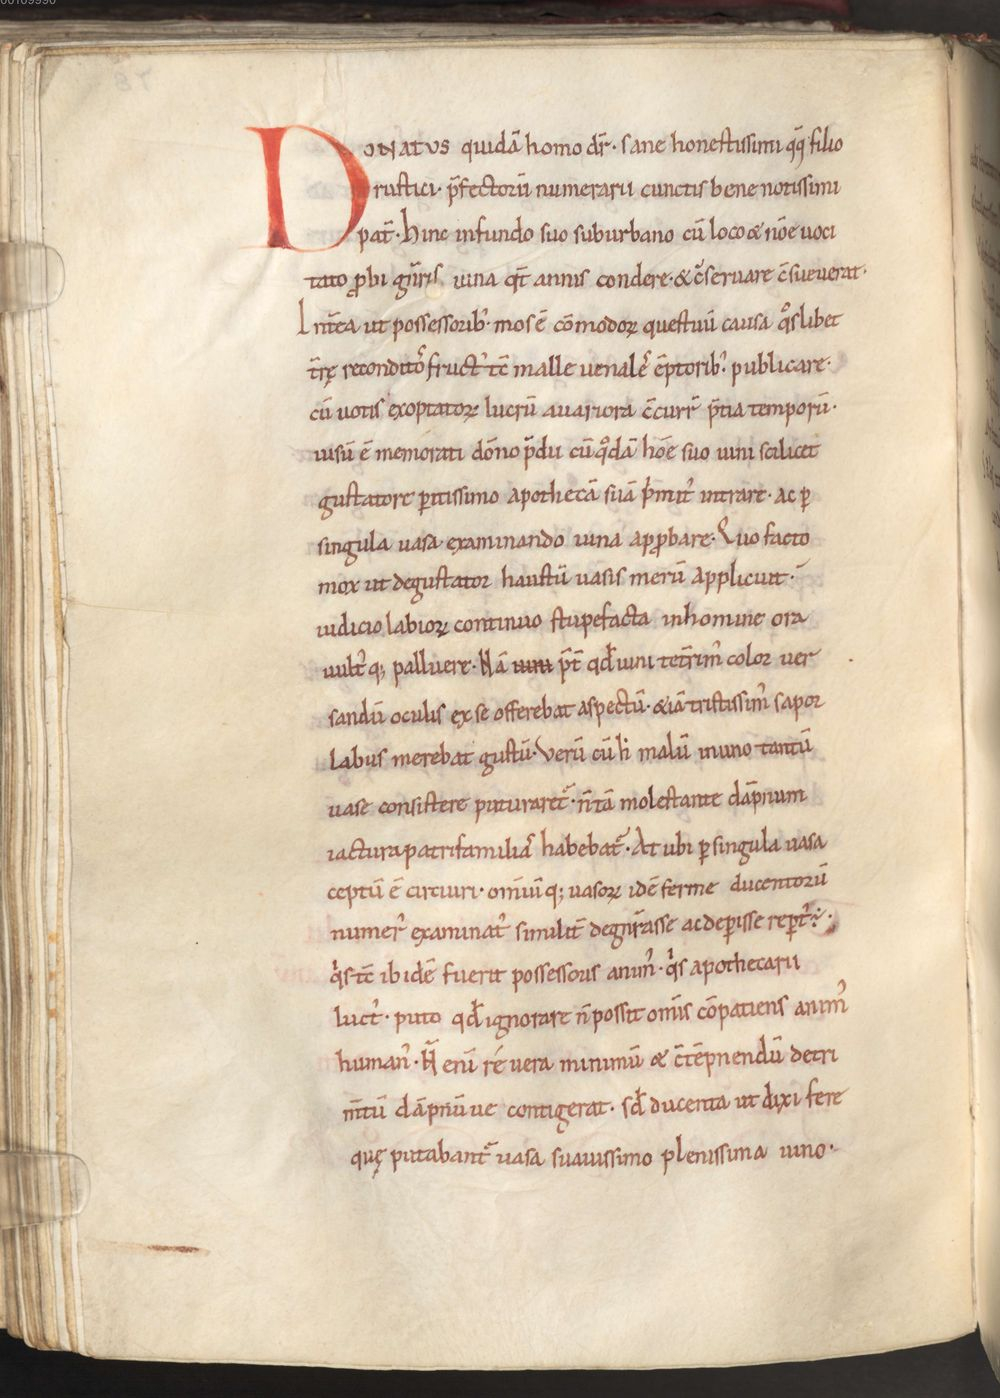 DONATVS quidā homo dr̄· sane honestissimi qq̄ filio
rustici· p̄fectorū numerarii cunctis bene notissimi
pat̄· hinc infundo suo suburbano cū loco & nōe uoci
tato ꝓbi gn̄ris uina qt̄ annis condere· & c̄seruare c̄sueuerat·
Int̄ea ut possessorib; mos ē cōmodoꝝ questuū causa qͦslibet
t̄rę reconditoͬ fruct᾿ tc̄ malle uenalē ēptorib; publicare·
cū uotis exoptatoꝝ lucrū auariora c̄curr̄ p̄tia temporū·
uisū ē memorati dōno p̄dii cū qͦdā hōe suo uini scilicet
gustatore ꝑitissimo apothecā suā p̄mit᾿ intrare· ac ꝑ
singula uasa examinando uina apꝓbare· Quo facto
mox ut degustator haustū uasis merū applicuit·
iudicio labioꝝ continuo stupefacta inhomine ora
uult᾿ q; palluere· Nā uini p̄t qd̄ uini tet̄rim᾿ color uer
sandū oculis ex se offerebat aspectū· & iā tristissim᾿ sapor
labiis merebat gustū· Verū cū h̄ malū inuno tantū
uase consistere puturaret᷑· n̄ tā molestante dāpnum
iactura patrifamiliaͬ habebat᷑· At ubi ꝑ singula uasa
ceptū ē circiuri· omīuq; uasoꝝ idē ferme ducentorū
numer᾿ examinat᾿ similit̄ degn̄rasse ac deꝑisse reꝑt᾿·
qͥs tc̄ ibidē fuerit possessoris anim᾿· qͥs apothecarii
luct᾿· puto qd̄ ignorare n̄ possit om̄is cōpatiens anim᾿
human᾿· N̄ eni rē uera minimū & c̄tēpnendū detri
m̄tū dāpnū ue contigerat· sd̄ ducenta ut dixi fere
quę putabant᷑ uasa suauissimo plenissima uino·